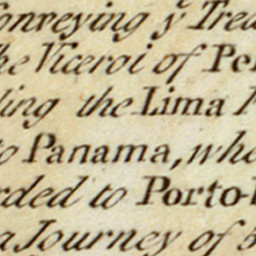 conveying yͤ Trea
he Viceroi of Pe
ling the Lima
to Panama, whe
rded to Porto-
a Journey of 5